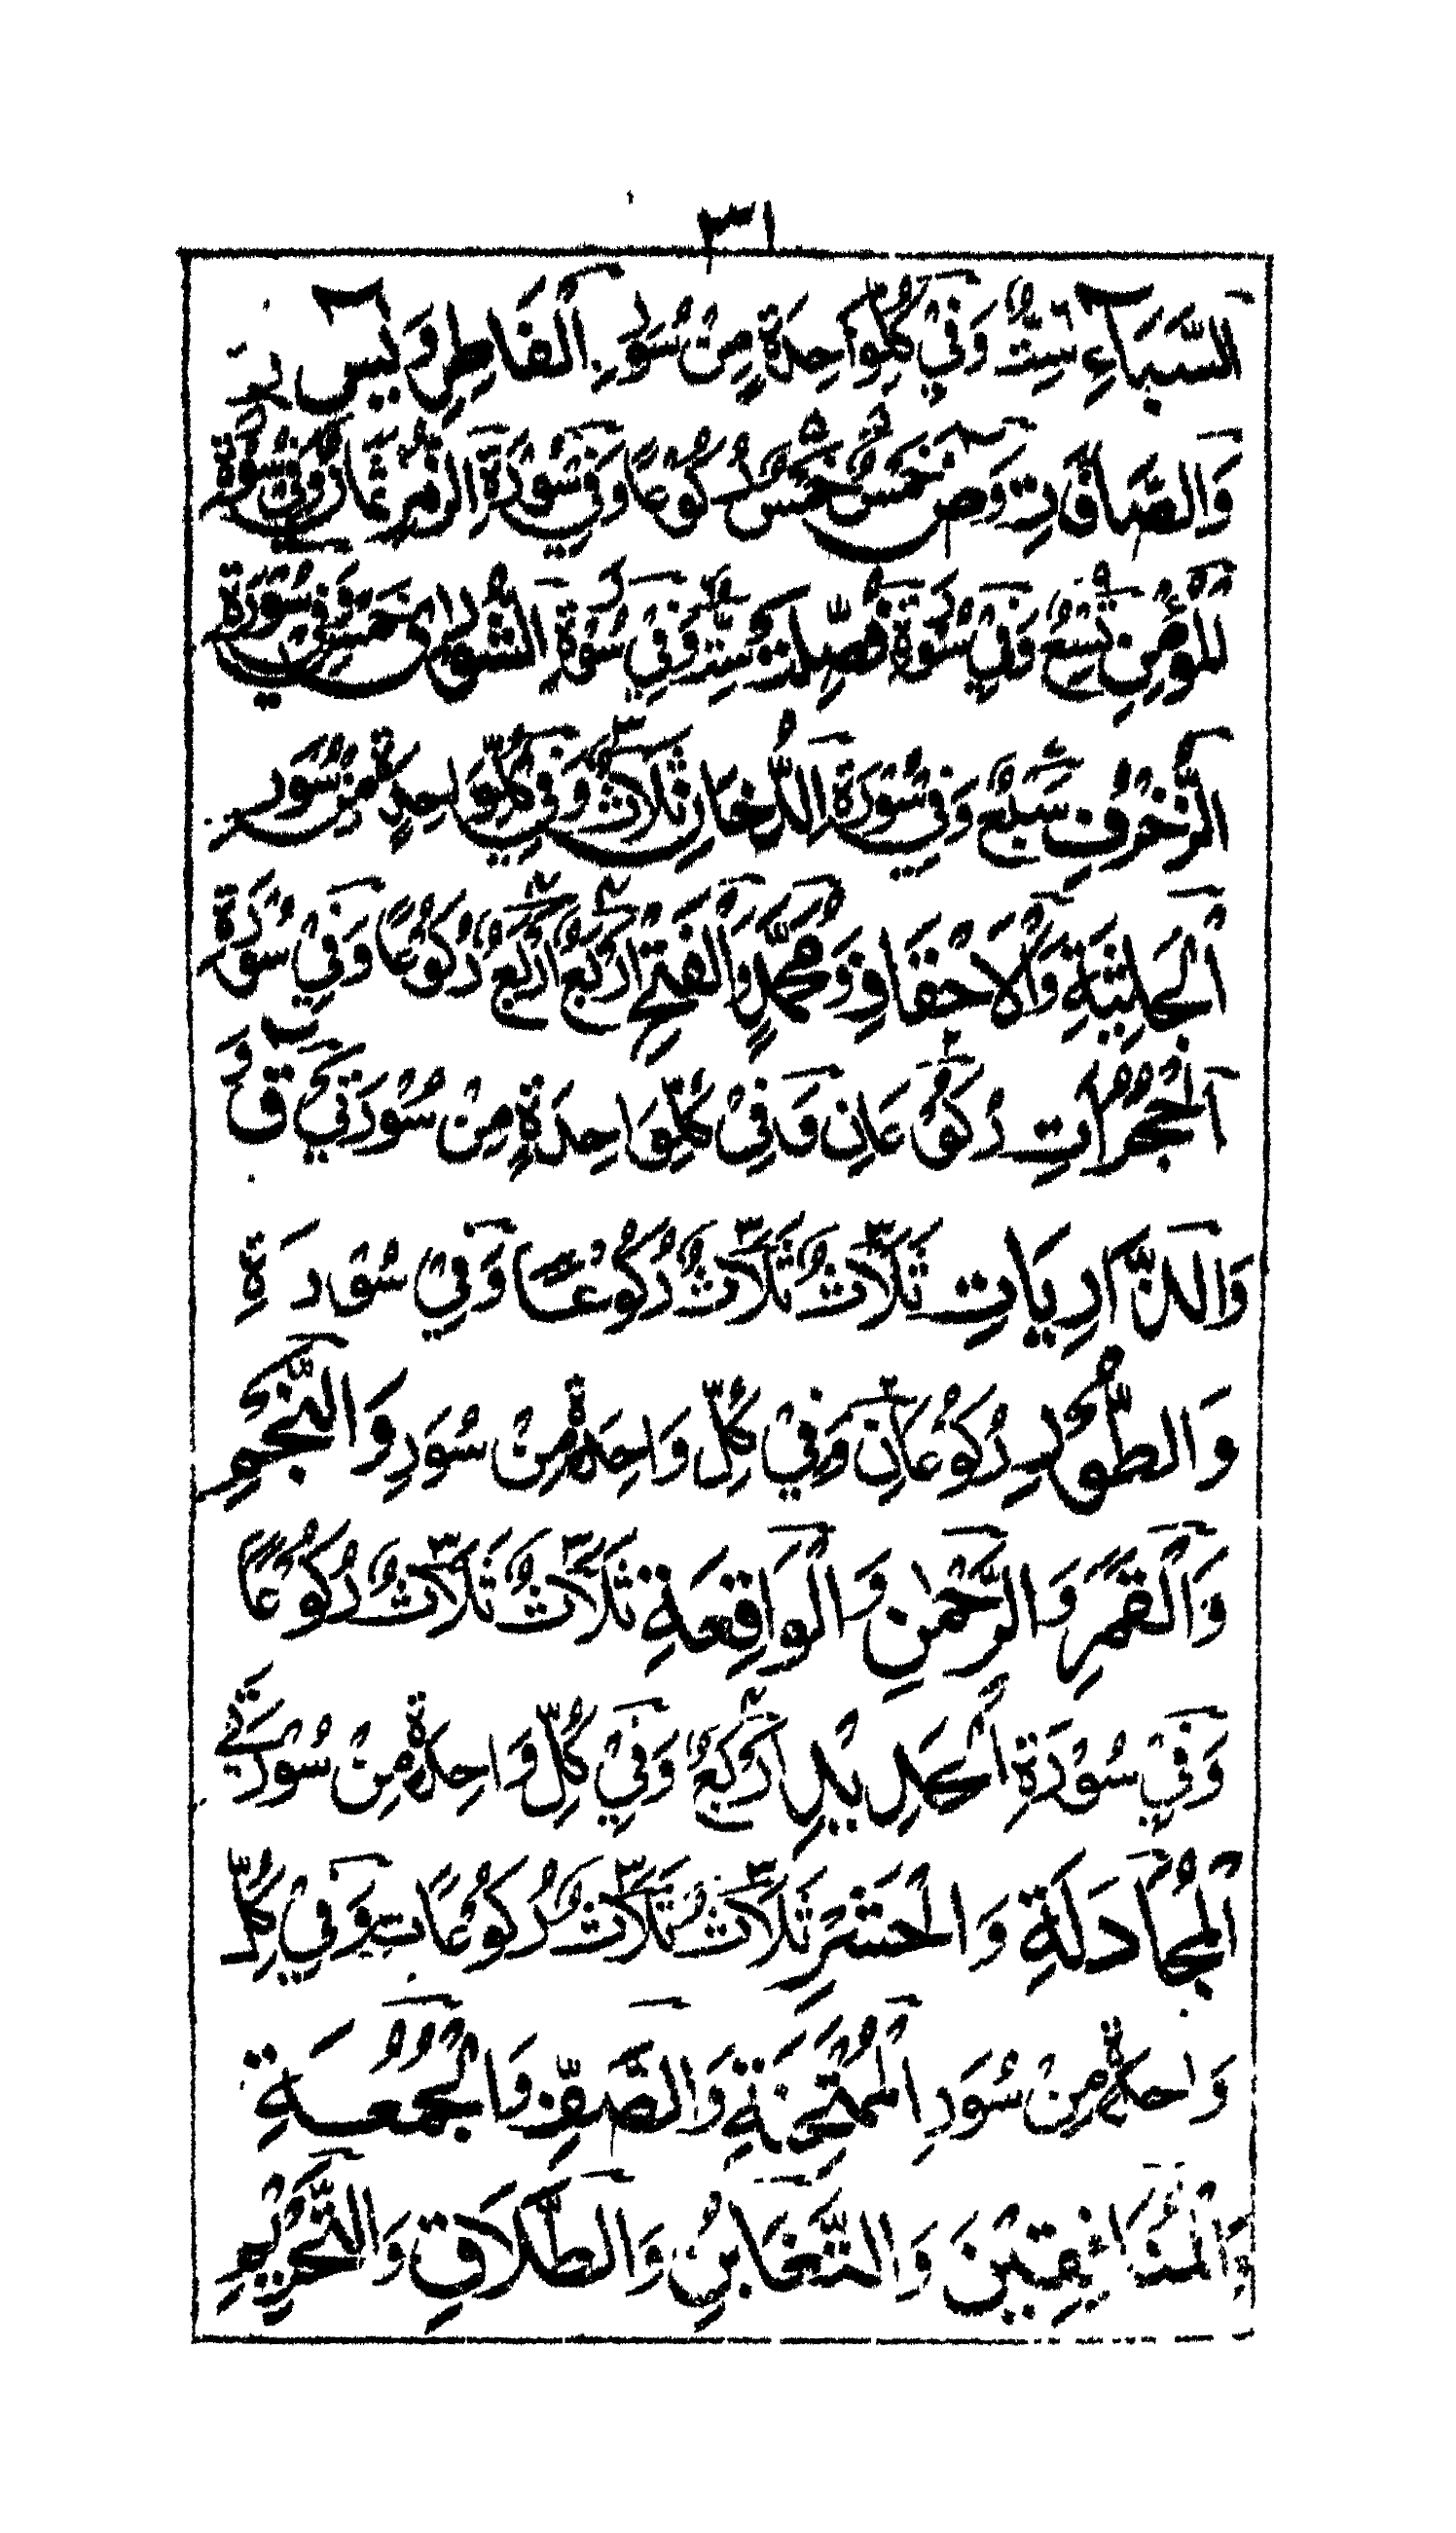 ٣١
السَّبَاءِ سِتٌّ وَفِيْ كُلِّ وَاحِدَةٍ مِنْ سُوَرِ الْفَاطِرِ وَيٰسٓ
وَالصَّافَّاتِ وَصٓ خَمْسٌ خَمْسٌ رُكُوْعًا وَفِيْ سُوْرَةِ الزُّمَرِ ثَمَانٌ وَفِيْ سُوْرَةِ
الْمُؤْمِنِ تِسْعٌ وَفِيْ سُوْرَةِ فُصِّلَتْ سِتٌّ وَفِيْ سُوْرَةِ الشُّوْرٰى خَمْسٌ وَفِيْ سُوْرَةِ
الزُّخْرُفِ سَبْعٌ وَفِيْ سُوْرَةِ الدُّخَانِ ثَلَاثٌ وَفِيْ كُلِّ وَاحِدَةٍ مِنْ سُوَرِ
الْجَاثِيَةِ وَالْاَحْقَافِ وَمُحَمَّدٍ وَالْفَتْحِ اَرْبَعٌ اَرْبَعٌ رُكُوْعًا وَفِيْ سُوْرَةِ
الْحُجُرَاتِ رُكُوْعَانِ وَفِيْ كُلِّ وَاحِدَةٍ مِنْ سُوْرَتَيْ قٓ
وَالذَّارِيَاتِ ثَلَاثٌ ثَلَاثٌ رُكُوْعًا وَفِيْ سُوْرَةِ
وَالطُّوْرِ رُكُوْعَانِ وَفِيْ كُلِّ وَاحِدَةٍ مِنْ سُوَرِ وَالنَّجْمِ
وَالْقَمَرِ وَالرَّحْمٰنِ وَالْوَاقِعَةِ ثَلَاثٌ ثَلَاثٌ رُكُوْعًا
وَفِيْ سُوْرَةِ الْحَدِيْدِ اَرْبَعٌ وَفِيْ كُلِّ وَاحِدَةٍ مِنْ سُوْرَتَيْ
الْمُجَادَلَةِ وَالْحَشْرِ ثَلَاثٌ ثَلَاثٌ رُكُوْعَاتٍ وَفِيْ كُلِّ
وَاحِدَةٍ مِنْ سُوَرِ الْمُمْتَحِنَةِ وَالصَّفِّ وَالْجُمُعَةِ
وَالْمُنَافِقِيْنَ وَالتَّغَابُنِ وَالطَّلَاقِ وَالتَّحْرِيْمِ